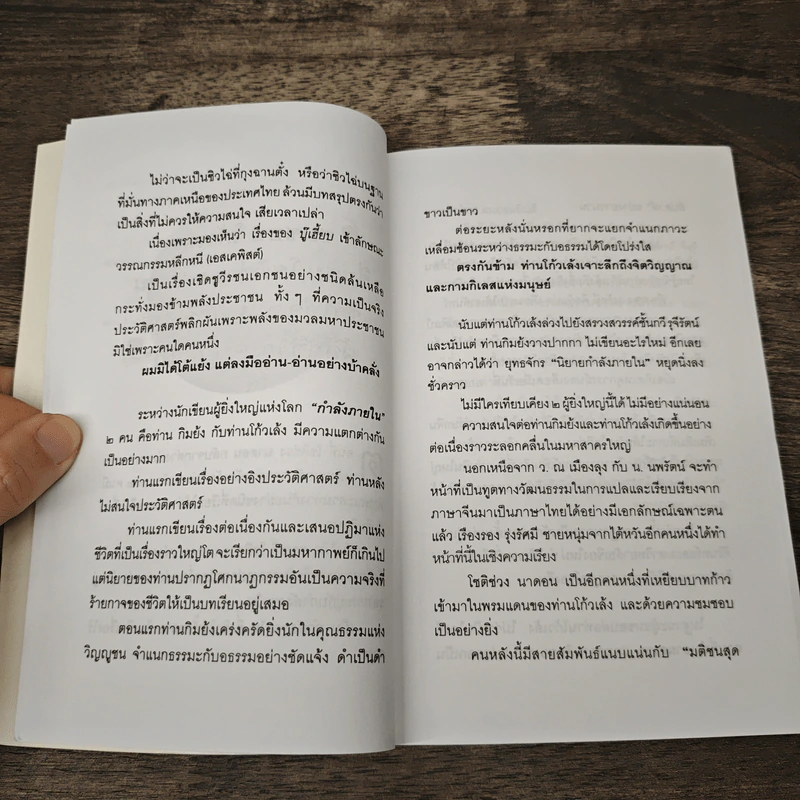 ไม่ว่าจะเป็นชิวไฉ่ที่กุงฉานตั๋ง หรือว่าชิวไฉ่บนฐาน
ที่มั่นทางภาคเหนือของประเทศไทย ล้วนมีบทสรุปตรงกันว่า
เป็นสิ่งที่ไม่ควรให้ความสนใจ เสียเวลาเปล่า
เนื่องเพราะมองเห็นว่า เรื่องของ บู๊เฮี้ยบ เข้าลักษณะ
วรรณกรรมหลีกหนี (เอสเคพิสต์)
เป็นเรื่องเชิดชูวีรชนเอกชนอย่างชนิดล้นเหลือ
กระทั่งมองข้ามพลังประชาชน ทั้ง ๆ ที่ความเป็นจริง
ประวัติศาสตร์พลิกผันเพราะพลังของมวลมหาประชาชน
มิใช่เพราะคนใดคนหนึ่ง
ผมมิได้โต้แย้ง แต่ลงมืออ่าน-อ่านอย่างบ้าคลั่ง
ระหว่างนักเขียนผู้ยิ่งใหญ่แห่งโลก “กำลังภายใน”
๒ คน คือท่าน กิมย้ง กับท่านโก้วเล้ง มีความแตกต่างกัน
เป็นอย่างมาก
ท่านแรกเขียนเรื่องอย่างอิงประวัติศาสตร์ ท่านหลัง
ไม่สนใจประวัติศาสตร์
ท่านแรกเขียนเรื่องต่อเนื่องกันและเสนอปฏิมาแห่ง
ชีวิตที่เป็นเรื่องราวใหญ่โต จะเรียกว่าเป็นมหากาพย์ก็เกินไป
แต่นิยายของท่านปรากฏโศกนาฏกรรมอันเป็นความจริงที่
ร้ายกาจของชีวิตให้เป็นบทเรียนอยู่เสมอ
ตอนแรกท่านกิมย้งเคร่งครัดยิ่งนักในคุณธรรมแห่ง
วิญญูชน จำแนกธรรมะกับอธรรมอย่างชัดแจ้ง ดำเป็นดำ
ขาวเป็นขาว
ต่อระยะหลังนั่นหรอกที่ยากจะแยกจำแนกภาวะ
เหลื่อมซ้อนระหว่างธรรมะกับอธรรมได้โดยโปร่งใส
ตรงกันข้าม ท่านโก้วเล้งเจาะลึกถึงจิตวิญญาณ
และกามกิเลสแห่งมนุษย์
นับแต่ท่านโก้วเล้งล่วงไปยังสรวงสวรรค์ชั้นกวี รุจิรัตน์
และนับแต่ ท่านกิมย้งวางปากกา ไม่เขียนอะไรใหม่ อีกเลย
อาจกล่าวได้ว่า ยุทธจักร “นิยายกำลังภายใน” หยุดนิ่งลง
ชั่วคราว
ไม่มีใครเทียบเคียง ๒ ผู้ยิ่งใหญ่นี้ได้ ไม่มีอย่างแน่นอน
ความสนใจต่อท่านกิมย้งและท่านโก้วเล้งเกิดขึ้นอย่าง
ต่อเนื่องราวระลอกคลื่นในมหาสาครใหญ่
นอกเหนือจาก ว. ณ เมืองลุง กับ น. นพรัตน์ จะทำ
หน้าที่เป็นทูตทางวัฒนธรรมในการแปลและเรียบเรียงจาก
ภาษาจีนมาเป็นภาษาไทยได้อย่างมีเอกลักษณ์เฉพาะตน
แล้ว เรืองรอง รุ่งรัศมี ชายหนุ่มจากไต้หวันอีกคนหนึ่งได้ทำ
หน้าที่นี้ในเชิงความเรียง
โชติช่วง นาดอน เป็นอีกคนหนึ่งที่เหยียบบาทก้าว
เข้ามาในพรมแดนของท่านโก้วเล้ง และด้วยความชมชอบ
เป็นอย่างยิ่ง
คนหลังนี้มีสายสัมพันธ์แนบแน่นกับ “มติชนสุด